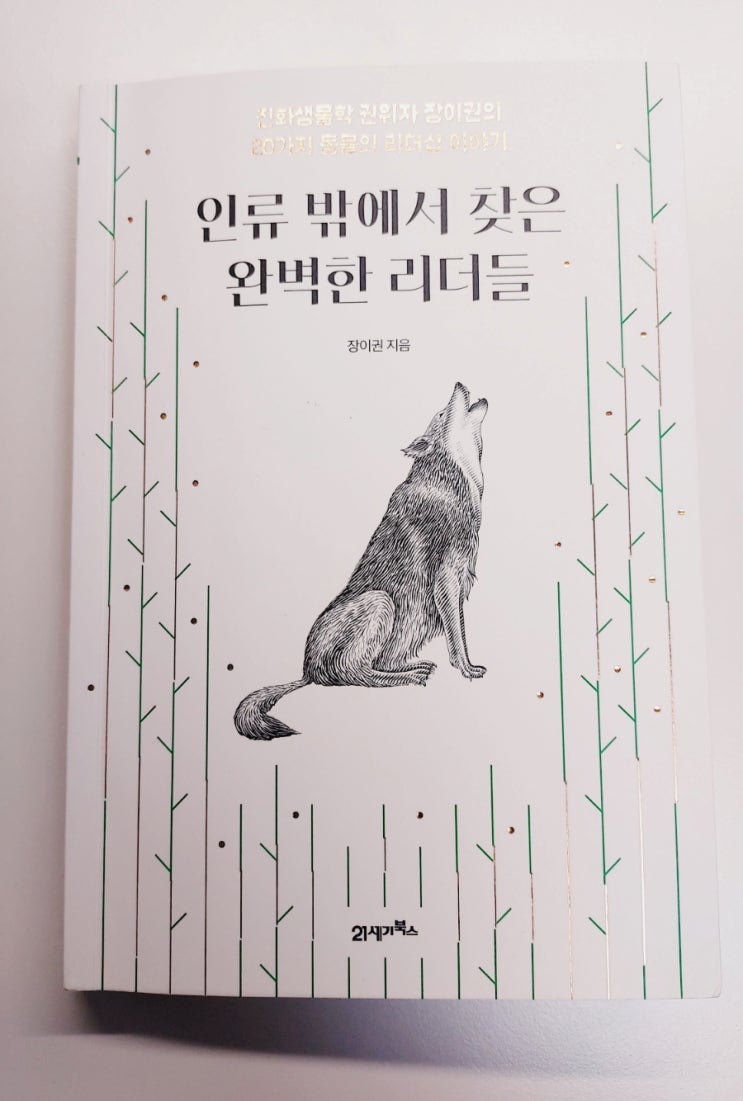 진화생물학 권위자 장이권의
20가지 동물의 리더십 이야기
인류 밖에서 찾은
완벽한 리더들
장이권 지음
21세기북스